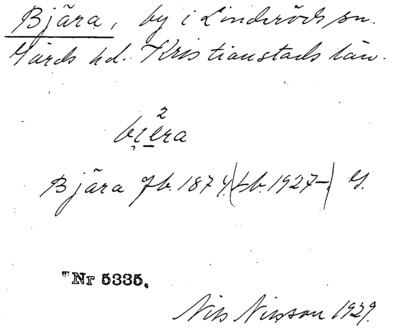 Bjära, by i Linderöds sn.
Gärds hd. Kristianstads län.
2
bi̯e̱ra
Bjära Jb. 1874, (Lb. 1927-,
Nr 5335.
Nils Nilsson 1929.